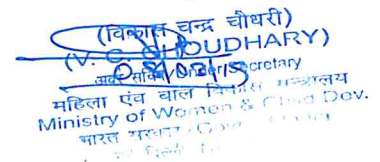 (विकास चन्द्र चौधरी)
(V. C. CHOUDHARY)
अवर सचिव/Under Secretary
महिला एंव बाल विकास मन्त्रालय
Ministry of Women & Child Dev.
भारत सरकार/Govt.